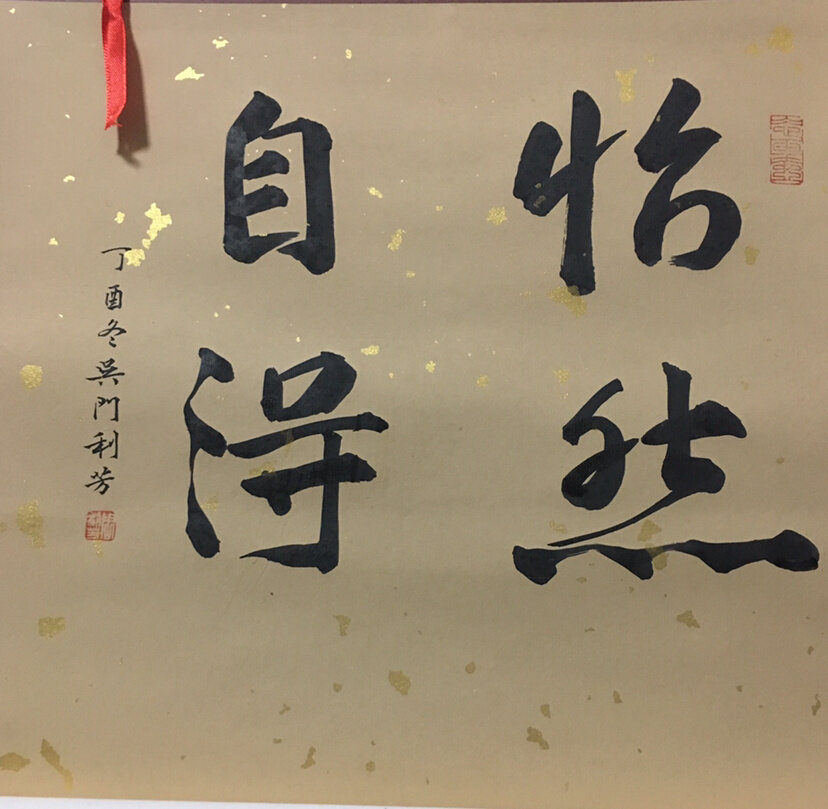 怡然
自得
丁酉冬吳門利芳